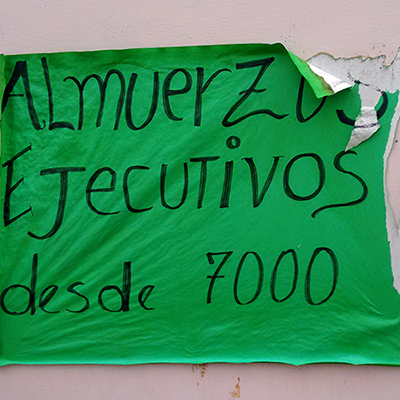 ALmuerZOS
EJeCUTiVOS
desde 7000